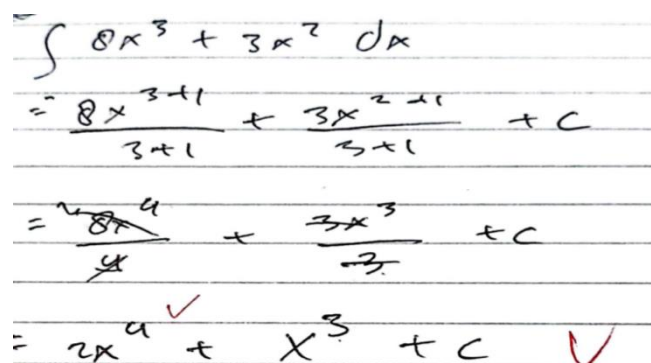 ∫ 8x³ + 3x² dx
= 8x³⁺¹/3+1 + 3x²⁺¹/3+1 + c
= ²8x⁴/4 + 3x³/3 + c
= 2x⁴ ✓ + x³ + c ✓